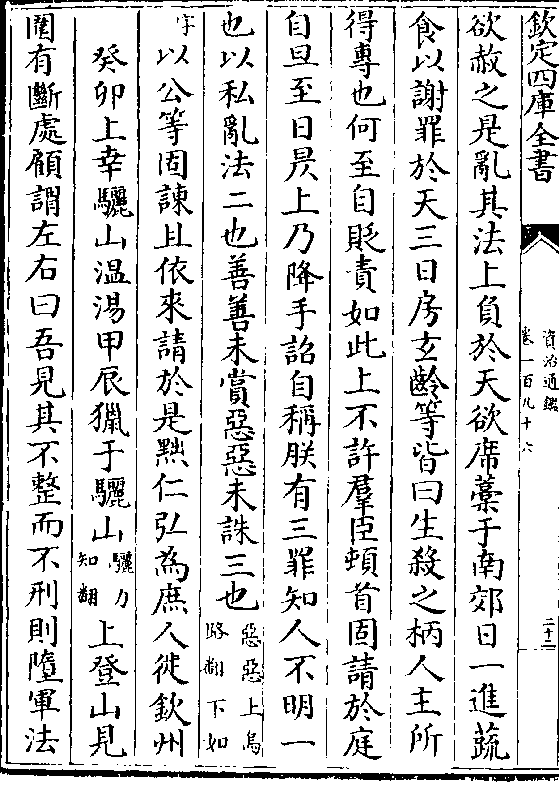 欽定四庫全書
資治通鑑
卷一百九十六
二十二
欲赦之是亂其法上負於天欲席藁于南郊日一進蔬
食以謝罪於天三日房玄齡等皆曰生殺之柄人主所
得專也何至自貶責如此上不許羣臣頓首固請於庭
自旦至日昃上乃降手詔自稱朕有三罪知人不明一
也以私亂法二也善善未賞惡惡未誅三也惡惡上烏路翻下如
字以公等固諫且依來請於是黥仁弘為庶人徙欽州
癸卯上幸驪山温湯甲辰獵于驪山驪力知翻上登山見
圍有斷處顧謂左右曰吾見其不整而不刑則隳軍法